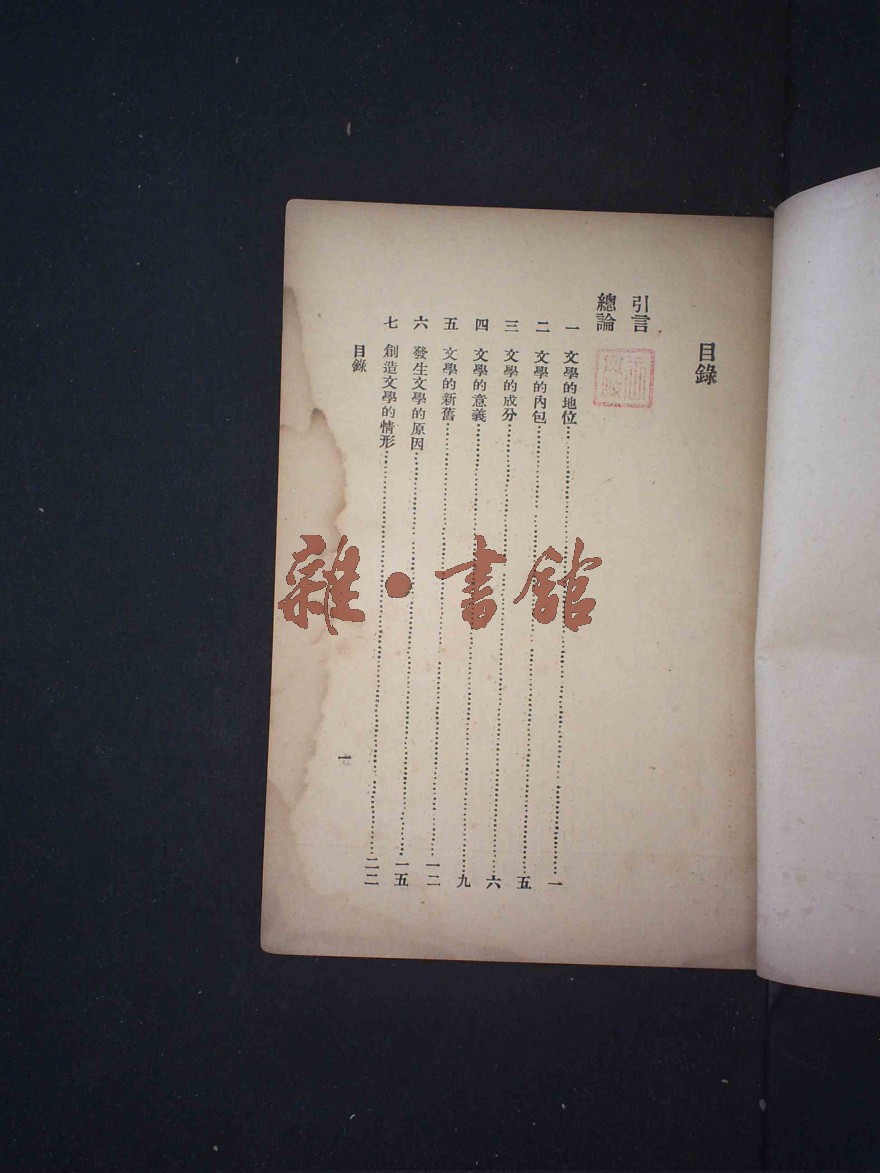 目錄
引言
總論
一 文學的地位 一
二 文學的內包 五
三 文學的成分 六
四 文學的意義 九
五 文學的新舊 一二
六 發生文學的原因 一五
七 創造文學的情形 二二
目錄 一
雜·書館